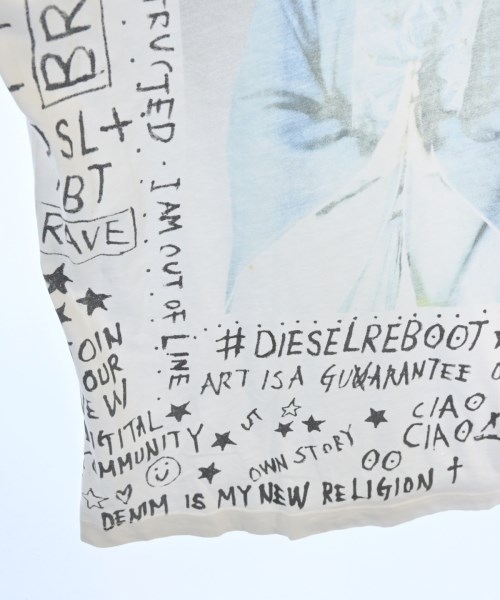 BR
SL+
BT
RAVE
OIN
OUR
EW
IGITAL
MMUNITY
TRUCTED · I AM OUT OF LINE
#DIESELREBOOT
ART IS A GUARANTEE
CIAO
CIAO
ST
OWN STORY
DENIM IS MY NEW RELIGION